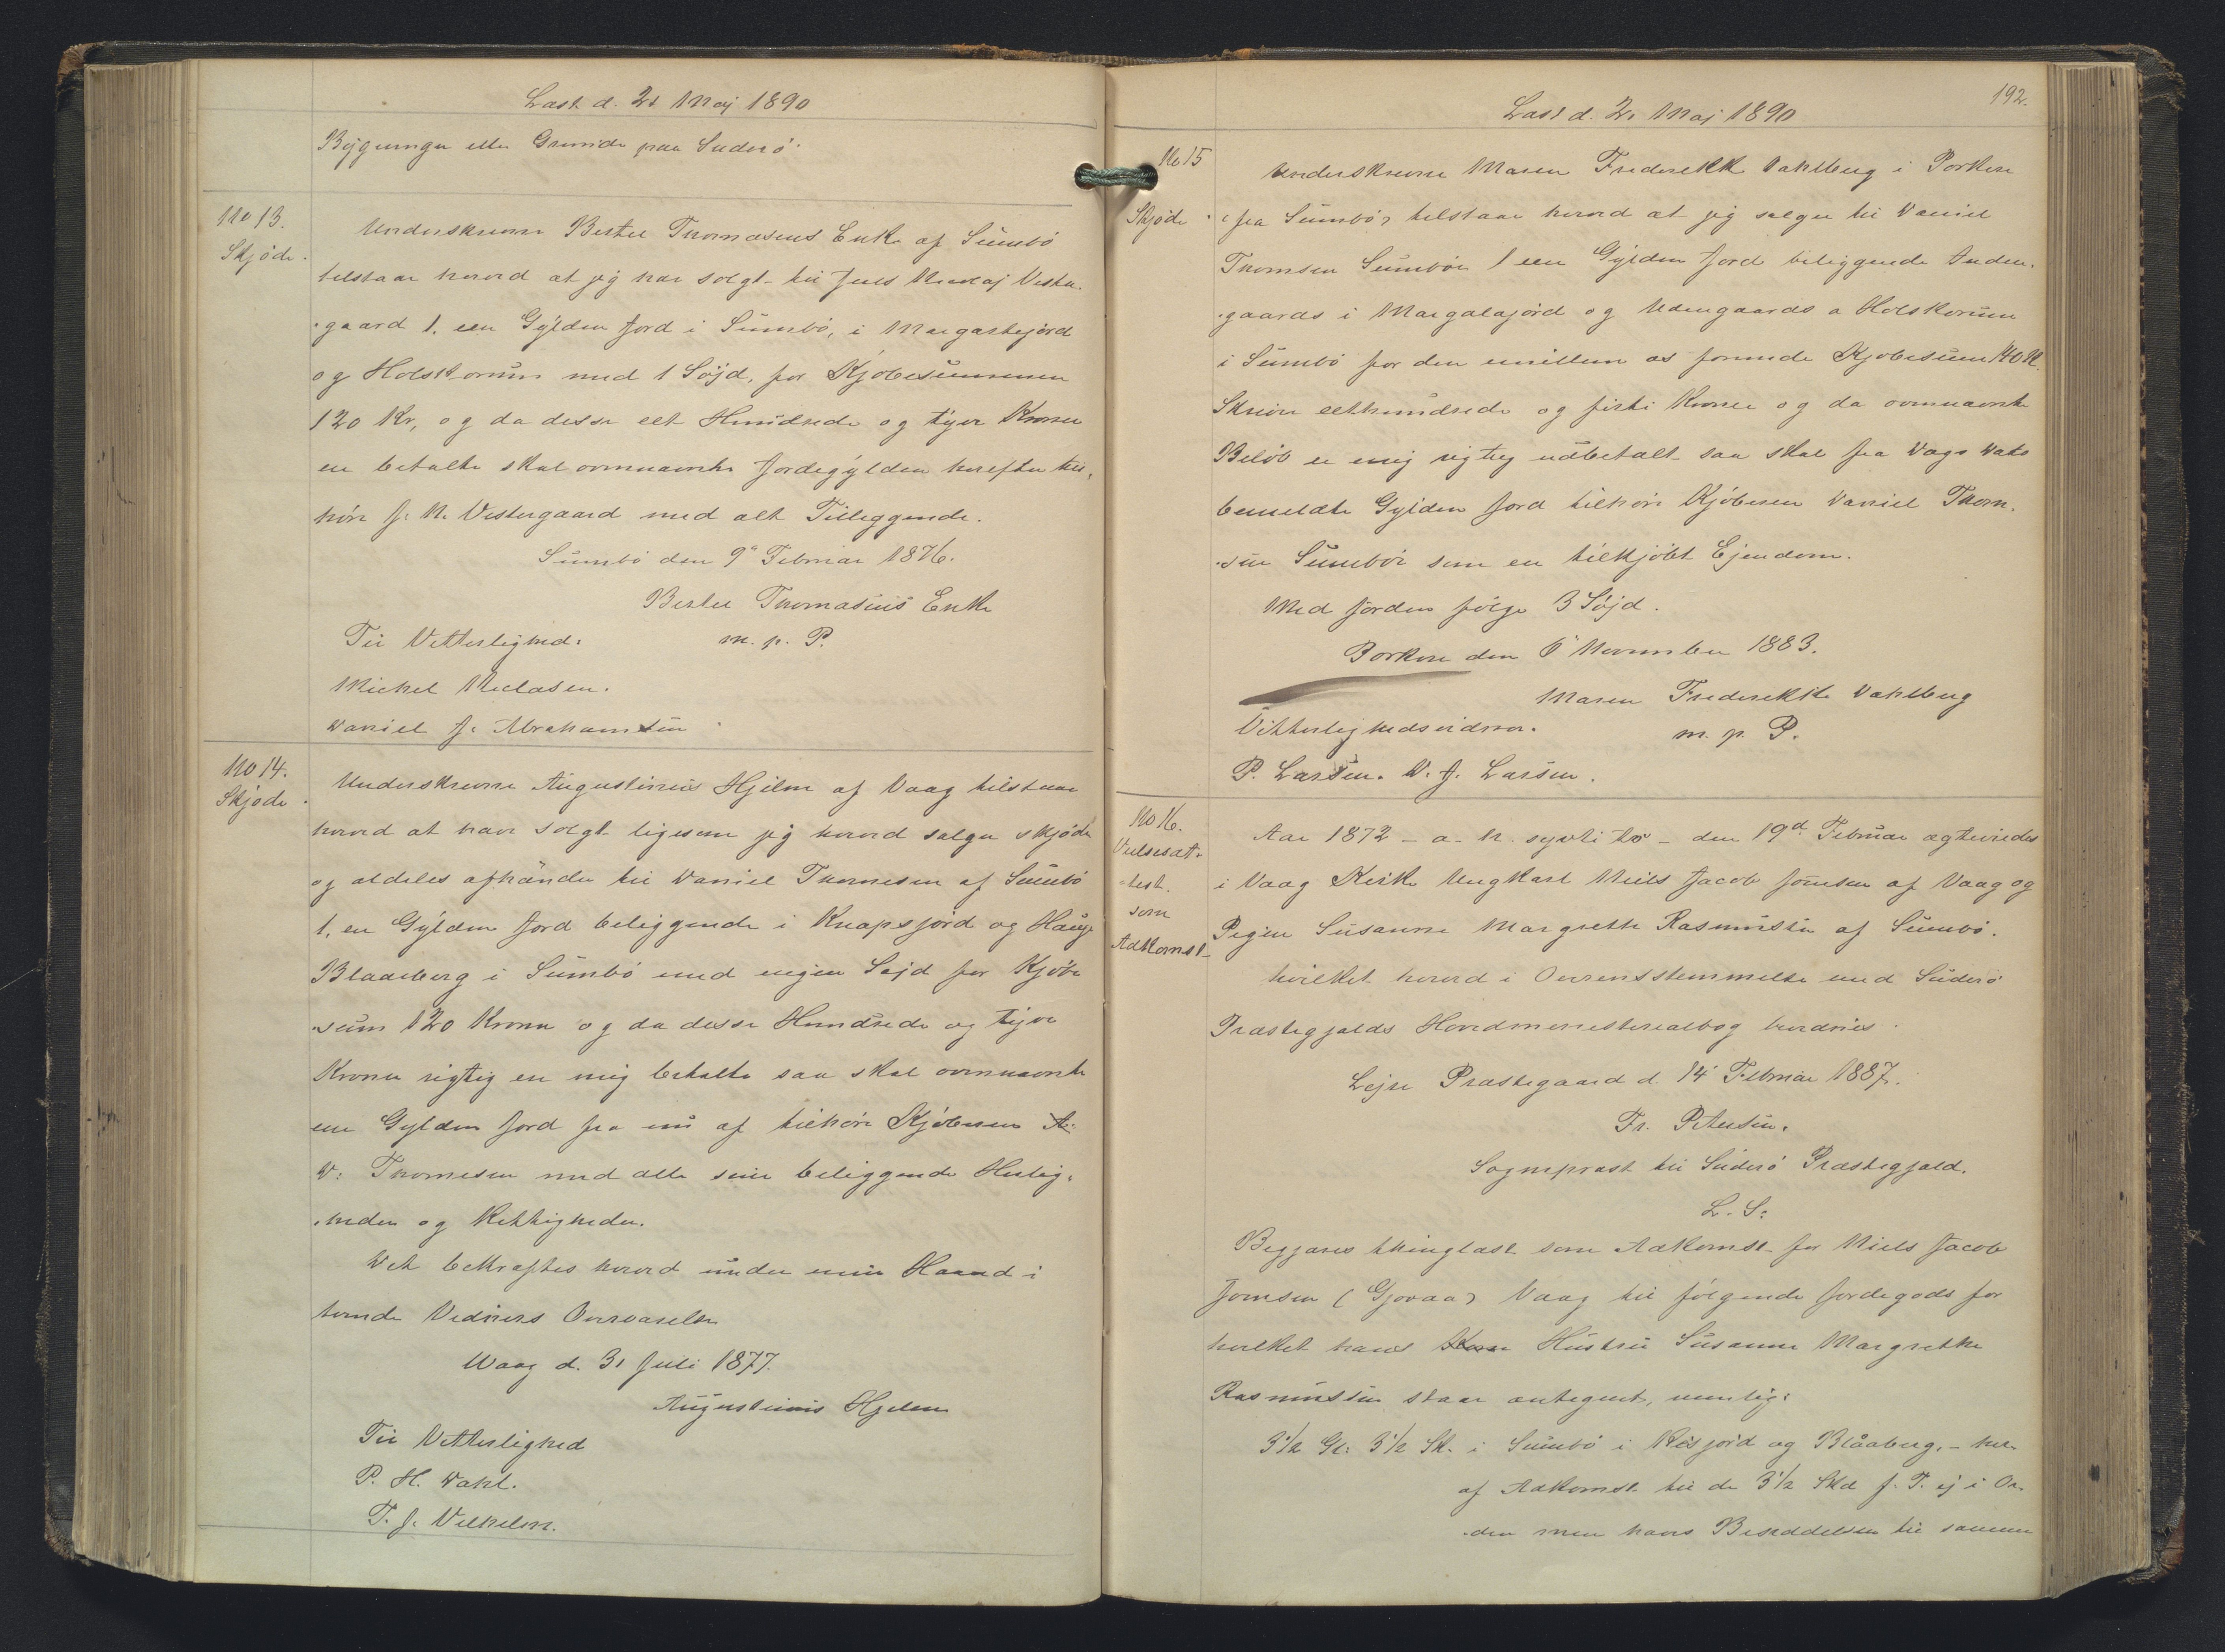 Læst d. 21 Maj 1890
Bygninger eller Grunde paa Suderö.
No 13.
Skjöde.
Underskrevne Bertel Thomasens Enke af Sumbö
tilstaar herved at jeg har solgt til Jens Nicolaj Vester-
gaard 1. een Gylden Jord i Sumbö, i Margarhejörd
og Holskorum med 1 Söjd, for Kjöbesummen
120 Kr, og da desse eet Hundrede og tyve Kroner
er betalte skal ovennævnte Jordegylden herefter til-
höre J. N. Vestergaard med alt Tilleggende.
Sumbö den 9de Februar 1876.
Bertel Thomasens Enke
m. p. P.
Til Vitterlighed:
Michel Niclasen.
Daniel J. Abrahamsen
No 14.
Skjöde.
Underskrevne Augustinus Hjelm af Vaag tilstaar
herved at have solgt ligesom jeg herved sælger skjöder
og aldeles afhænder til Daniel Thomesen af Sumbö
1. en Gylden Jord beliggende i Knapsjörd og Hauge
Blaaeberg i Sumbö med ingen Sejd for Kjöbe
sum 120 Kroner og da desse Hundrede og tyve
Kroner rigtig er mig betalte saa skal ovennævnte
ene Gylden Jord fra nu af tilhöre Kjöberen
D: Thomesen med alle sine beliggende Herlig-
heder og Rettigheder.
Det bekræftes herved under min Haand i
tvende Vidners Overværelse
Waag d. 31 Juli 1877.
Augustinus Hjelm
Til Vitterlighed
P. H. Dahl.
T. J. Vilhelm.
192.
Læst d. 21 Maj 1890
No 15
Skjöde
Underskrevne Maren Frederekke Dahlberg i Porkere
(fra Sumbö) tilstaar herved at jeg sælger til Daniel
Thomsen Sumböe 1 een Gylden Jord beliggende Inden-
gaards i Margalajörd og Udengaards a Holskorum
i Sumbö for den imillem os forende Kjöbesum 140 K.
Skriver eethundrede og firti Kroner og da ovennævnte
Belöb er mig rigtig udbetalt saa skal fra Dags Dato
bemeldte Gylden Jord tilhöre Kjöberen Daniel Thom-
sen Sumböe som en tilkjöbt Ejendom.
Med Jorden fölge 3 Söjd.
Porkere den 6 November 1883.
Maren Frederekke Dahlberg
m. p. P.
Vitterlighedsvidner.
P. Larsen. D. J. Larsen.
No 16.
Vielsesat-
test.
som
Adkomst
Aar 1872 - a. h. syvti to - den 19d. Februar ægteviedes
i Vaag Kirke Ungkarl Niels Jacob Joensen af Vaag og
Pigen Susanne Margrethe Rasmussen af Sumbö.
hvilket herved i Overensstemmelse med Suderö
Præstegjælds Hovedministerialbog bevidnes.
Lejre Præstegaard d. 14 Februar 1887.
Fr. Petersen.
Sognepræst til Suderö Præstegjæld.
L. S:
Begjæres thinglæst som Adkomst for Niels Jacob
Joensen (Gjovaa) Vaag til fölgende Jordegods for
hvilket hans Hustru Susanne Margrethe
Rasmussen staar antegnet, nemlig:
3 1/2 Gl: 3 1/2 Sk. i Sumbö i Resjörd og Blåaberg, - her
af Adkomst til de 3 1/2 Skd J. T. ej i Or-
den men hans Besiddelsen til samme